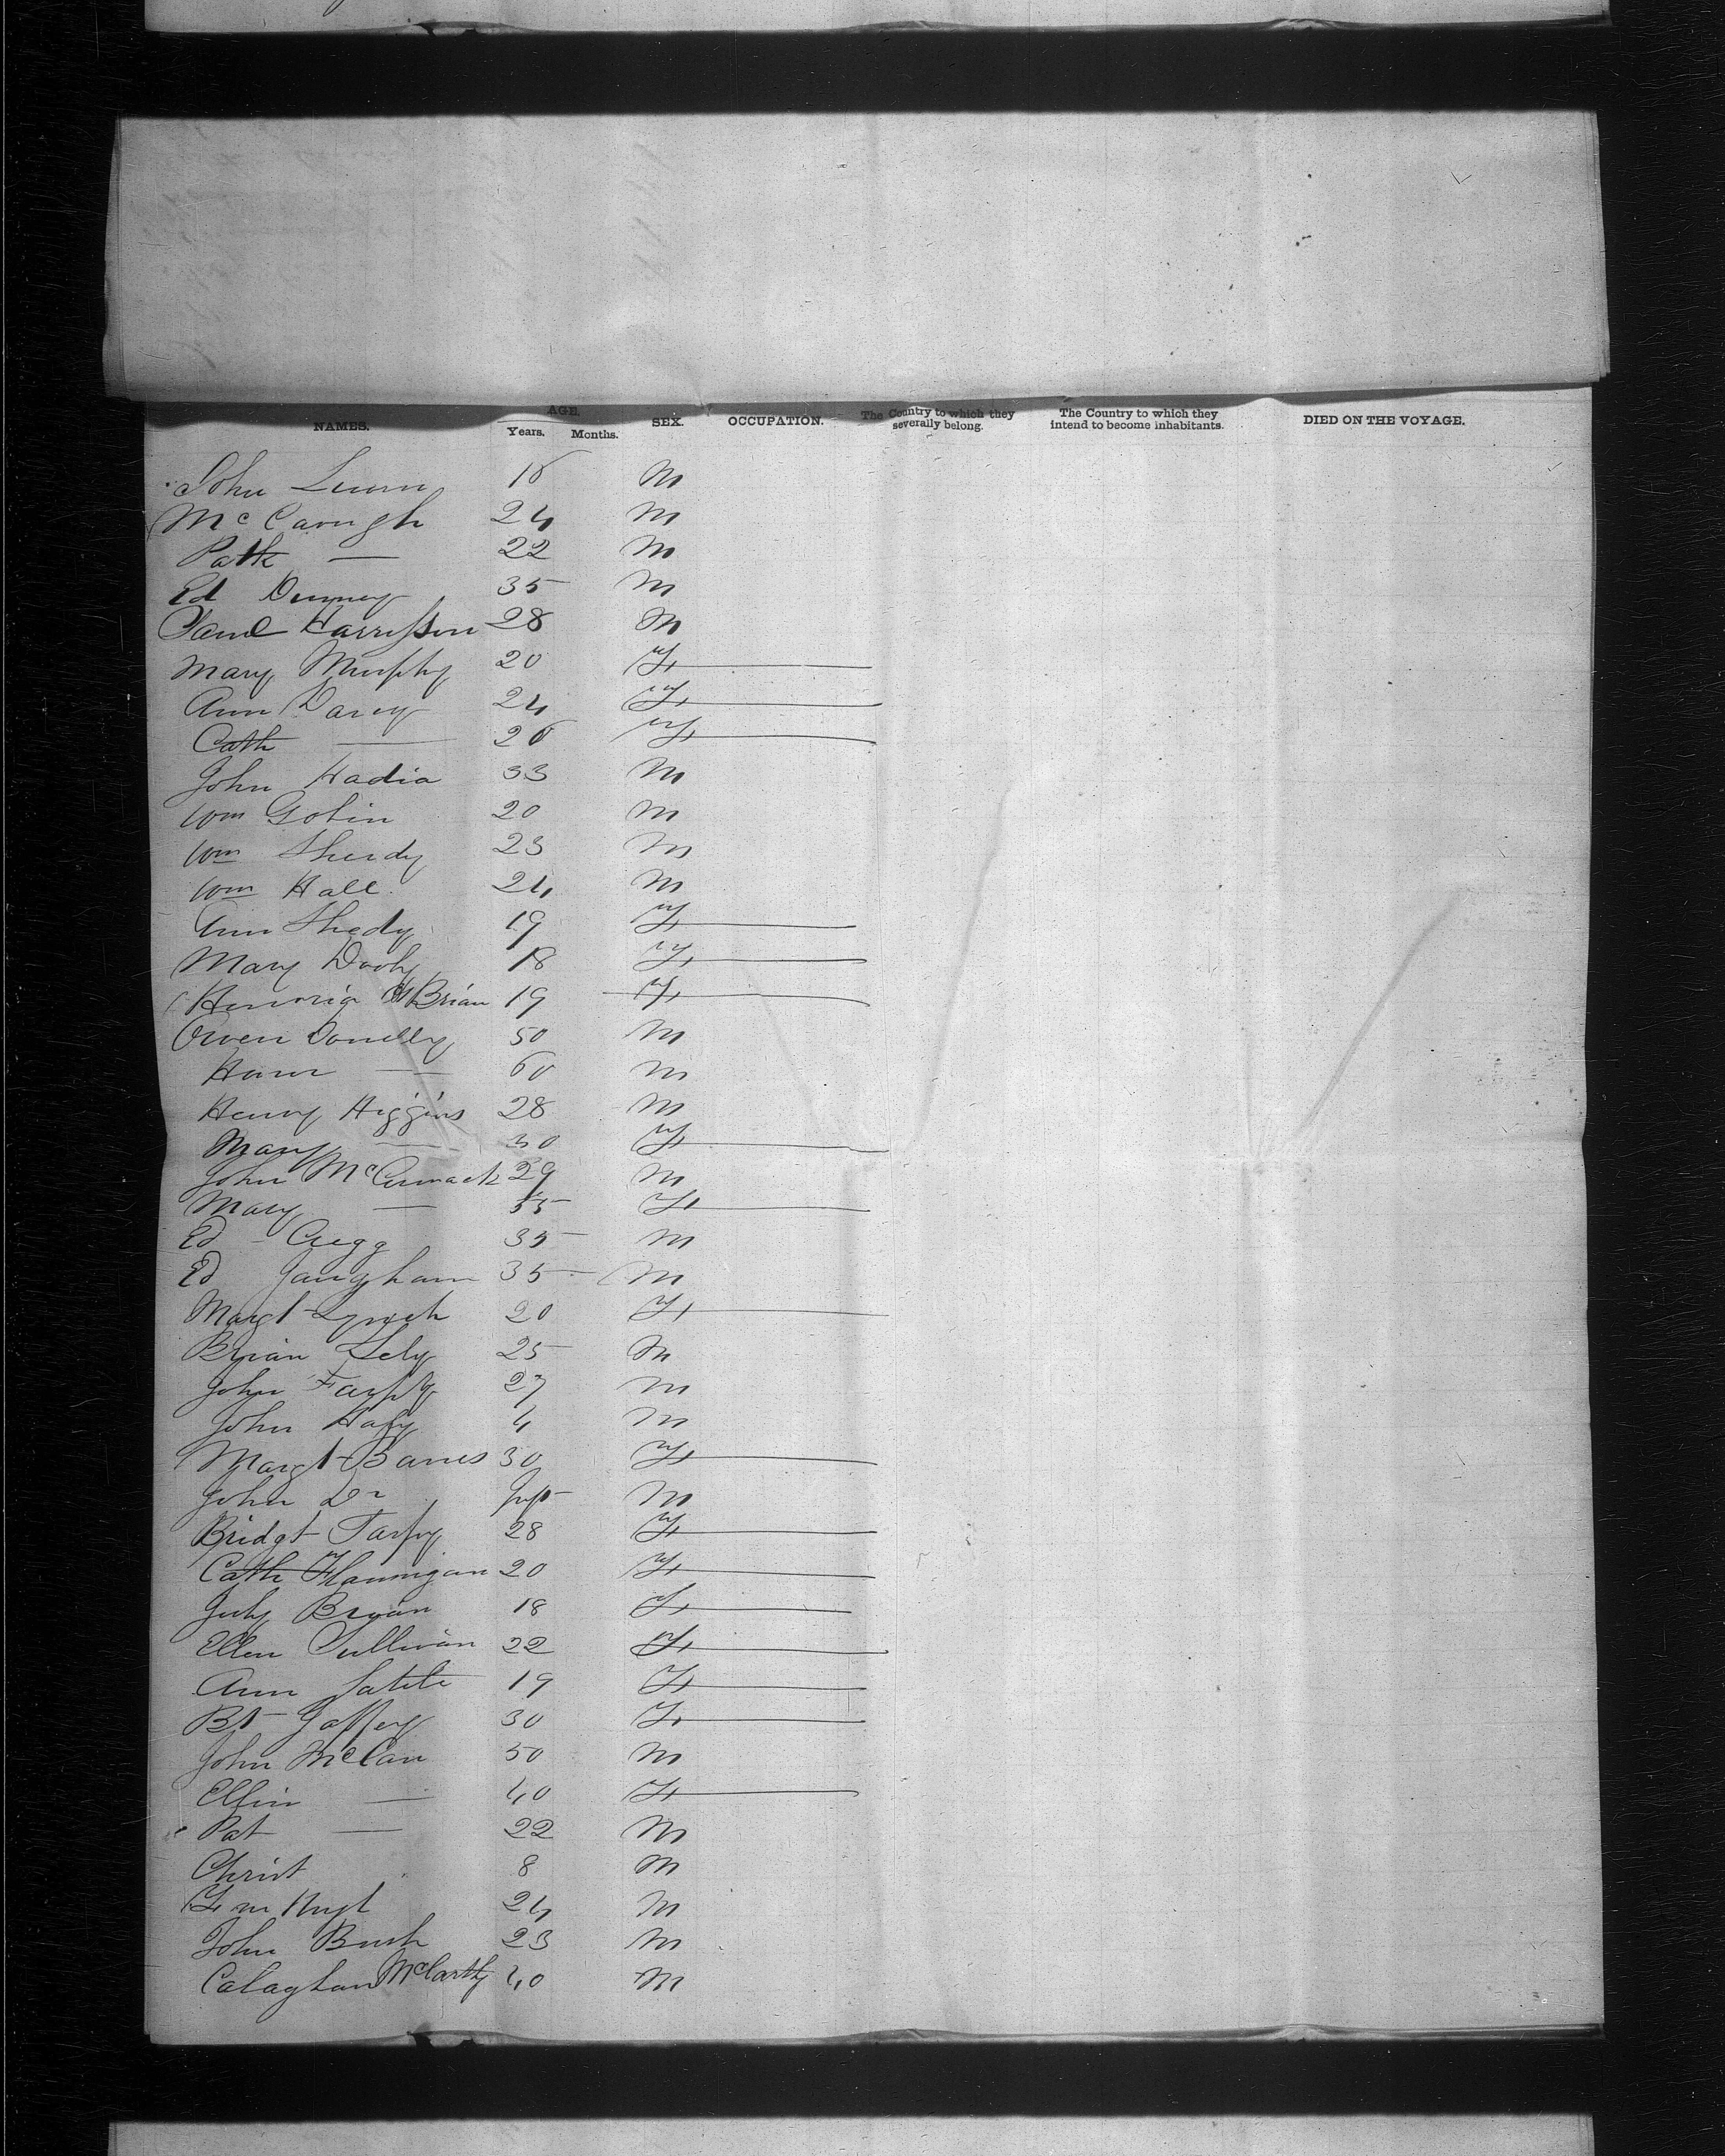 NAMES. AGE. Years. Months. SEX. OCCUPATION. The Country to which they severally belong. The Country to which they intend to become inhabitants. DIED ON THE VOYAGE.
John 18 M
McCavugh 24 M
Patk — 22 M
Ed Dunney 35 M
Saml Harrisson 28 M
Mary Murphy 20 F
Ann Darcy 24 F
Cath — 26 F
John Hadia 33 M
Wm Gobin 20 M
Wm Sheedy 23 M
Wm Hall 24 M
Ann Sheedy 19 F
Mary Dooly 18 F
O'Brian 19 F
Owen Donelly 50 M
— 60 M
Henry Higgins 28 M
Mary — 30 F
John McCormack 29 M
Mary — 35 F
Ed Cregg 35 M
Ed 35 M
Margt Lynch 20 F
Brian 25 M
John 27 M
John 4 M
Margt Barnes 30 F
John Do M
Bridgt 28 F
Cath Flannigan 20 F
July Bryan 18 F
Ellen Sullivan 22 F
Ann 19 F
Bt Gaffey 30 F
John McCan 50 M
Ellin — 40 F
Pat — 22 M
Christ 8 M
24 M
John Bush 23 M
Calaghan McCarthy 40 M